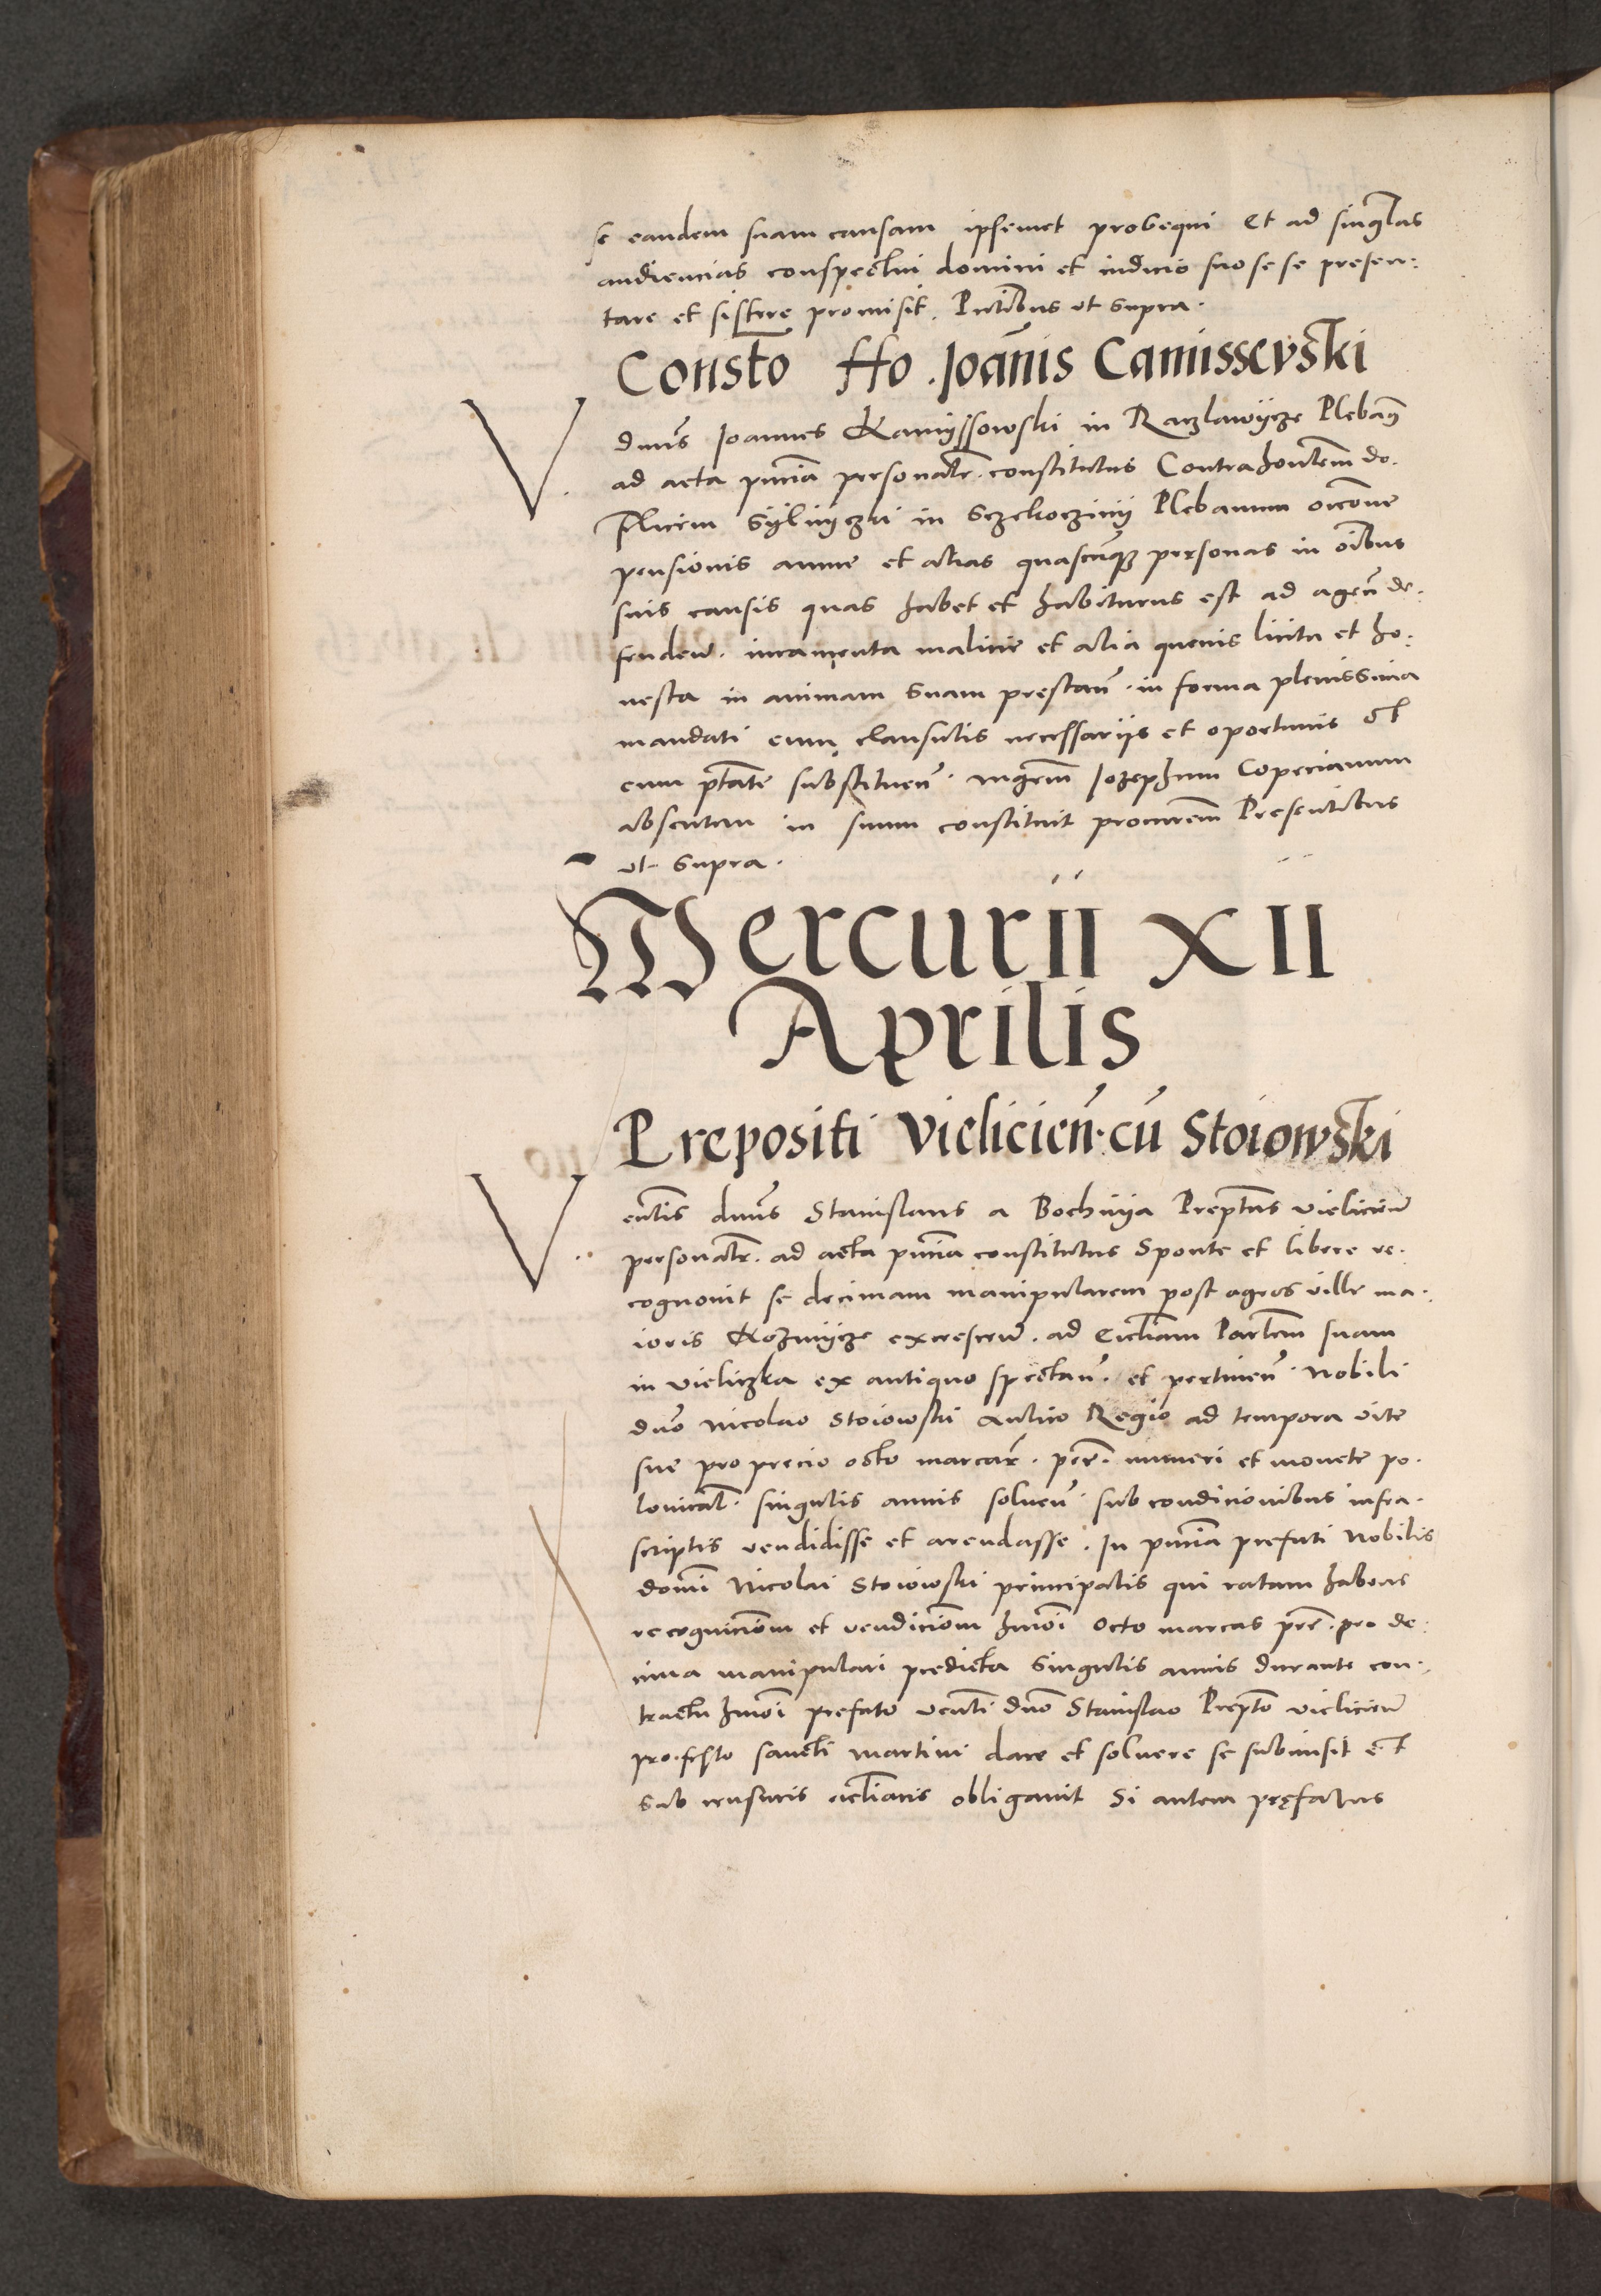 se eandem suam causam ipsemet prosequi Et ad singlas
audiencias conspectui domini et iudicio suo se se presen:
tare et sistere promisit. Pntibus ut supra.
Constto ffo. Joannis Camissevski
V. dnus Joannes Kamyssowski in Raczlawycze Plebanus
ad acta pncia personalr. constitutus Contra hontem do.
Felicem Sylnyczki in Sczekocziny Plebanum occone
pensionis annue et alias quascumque personas in oibus
suis causis quas habet et habiturus est ad agen de:
fenden. iuramenta malicie et alia quevis licita et ho:
nesta in animam suam prestan. in forma plenissima
mandati cum clausulis necessariis et oportunis Et
cum ptate substituen. mgrem Jozephum Copecianum
absentem in suum constituit procurem Presentibus
ut supra.
Mercurii XII
Aprilis
Prepositi Vielicien. cu Stoiowski
V.. entis dnus Stanislaus a Bochnya Preptus vielicien
personalr. ad acta pncia constitutus Sponte et libere re.
cognovit se decimam manipularem post agros ville ma.
ioris Kozmycze excrescen. ad Ecclliam Parlem suam
in vieliczka ex antiquo spectan. et pertinen. Nobili
dno Nicolao Stoiowski Aulico Regio ad tempora vite
sue pro precio octo marcar. pecc. numeri et monete po.
lonical. singulis annis solven. sub condicionibus infra.
scriptis vendidisse et arendasse. In pncia prefati Nobilis
domi Nicolai Stoiowski principalis qui ratam habens
recognicionm et vendicionm hmoi Octo marcas pecc. pro de:
cima manipulari predicta singulis annis durante con.
tractu hmoi prefato venti dno Stanislao Prepto vielicien
pro. festo sancti martini dare et solvere se submisit et
sub censuris ecclliaris obligavit Si autem prefatus